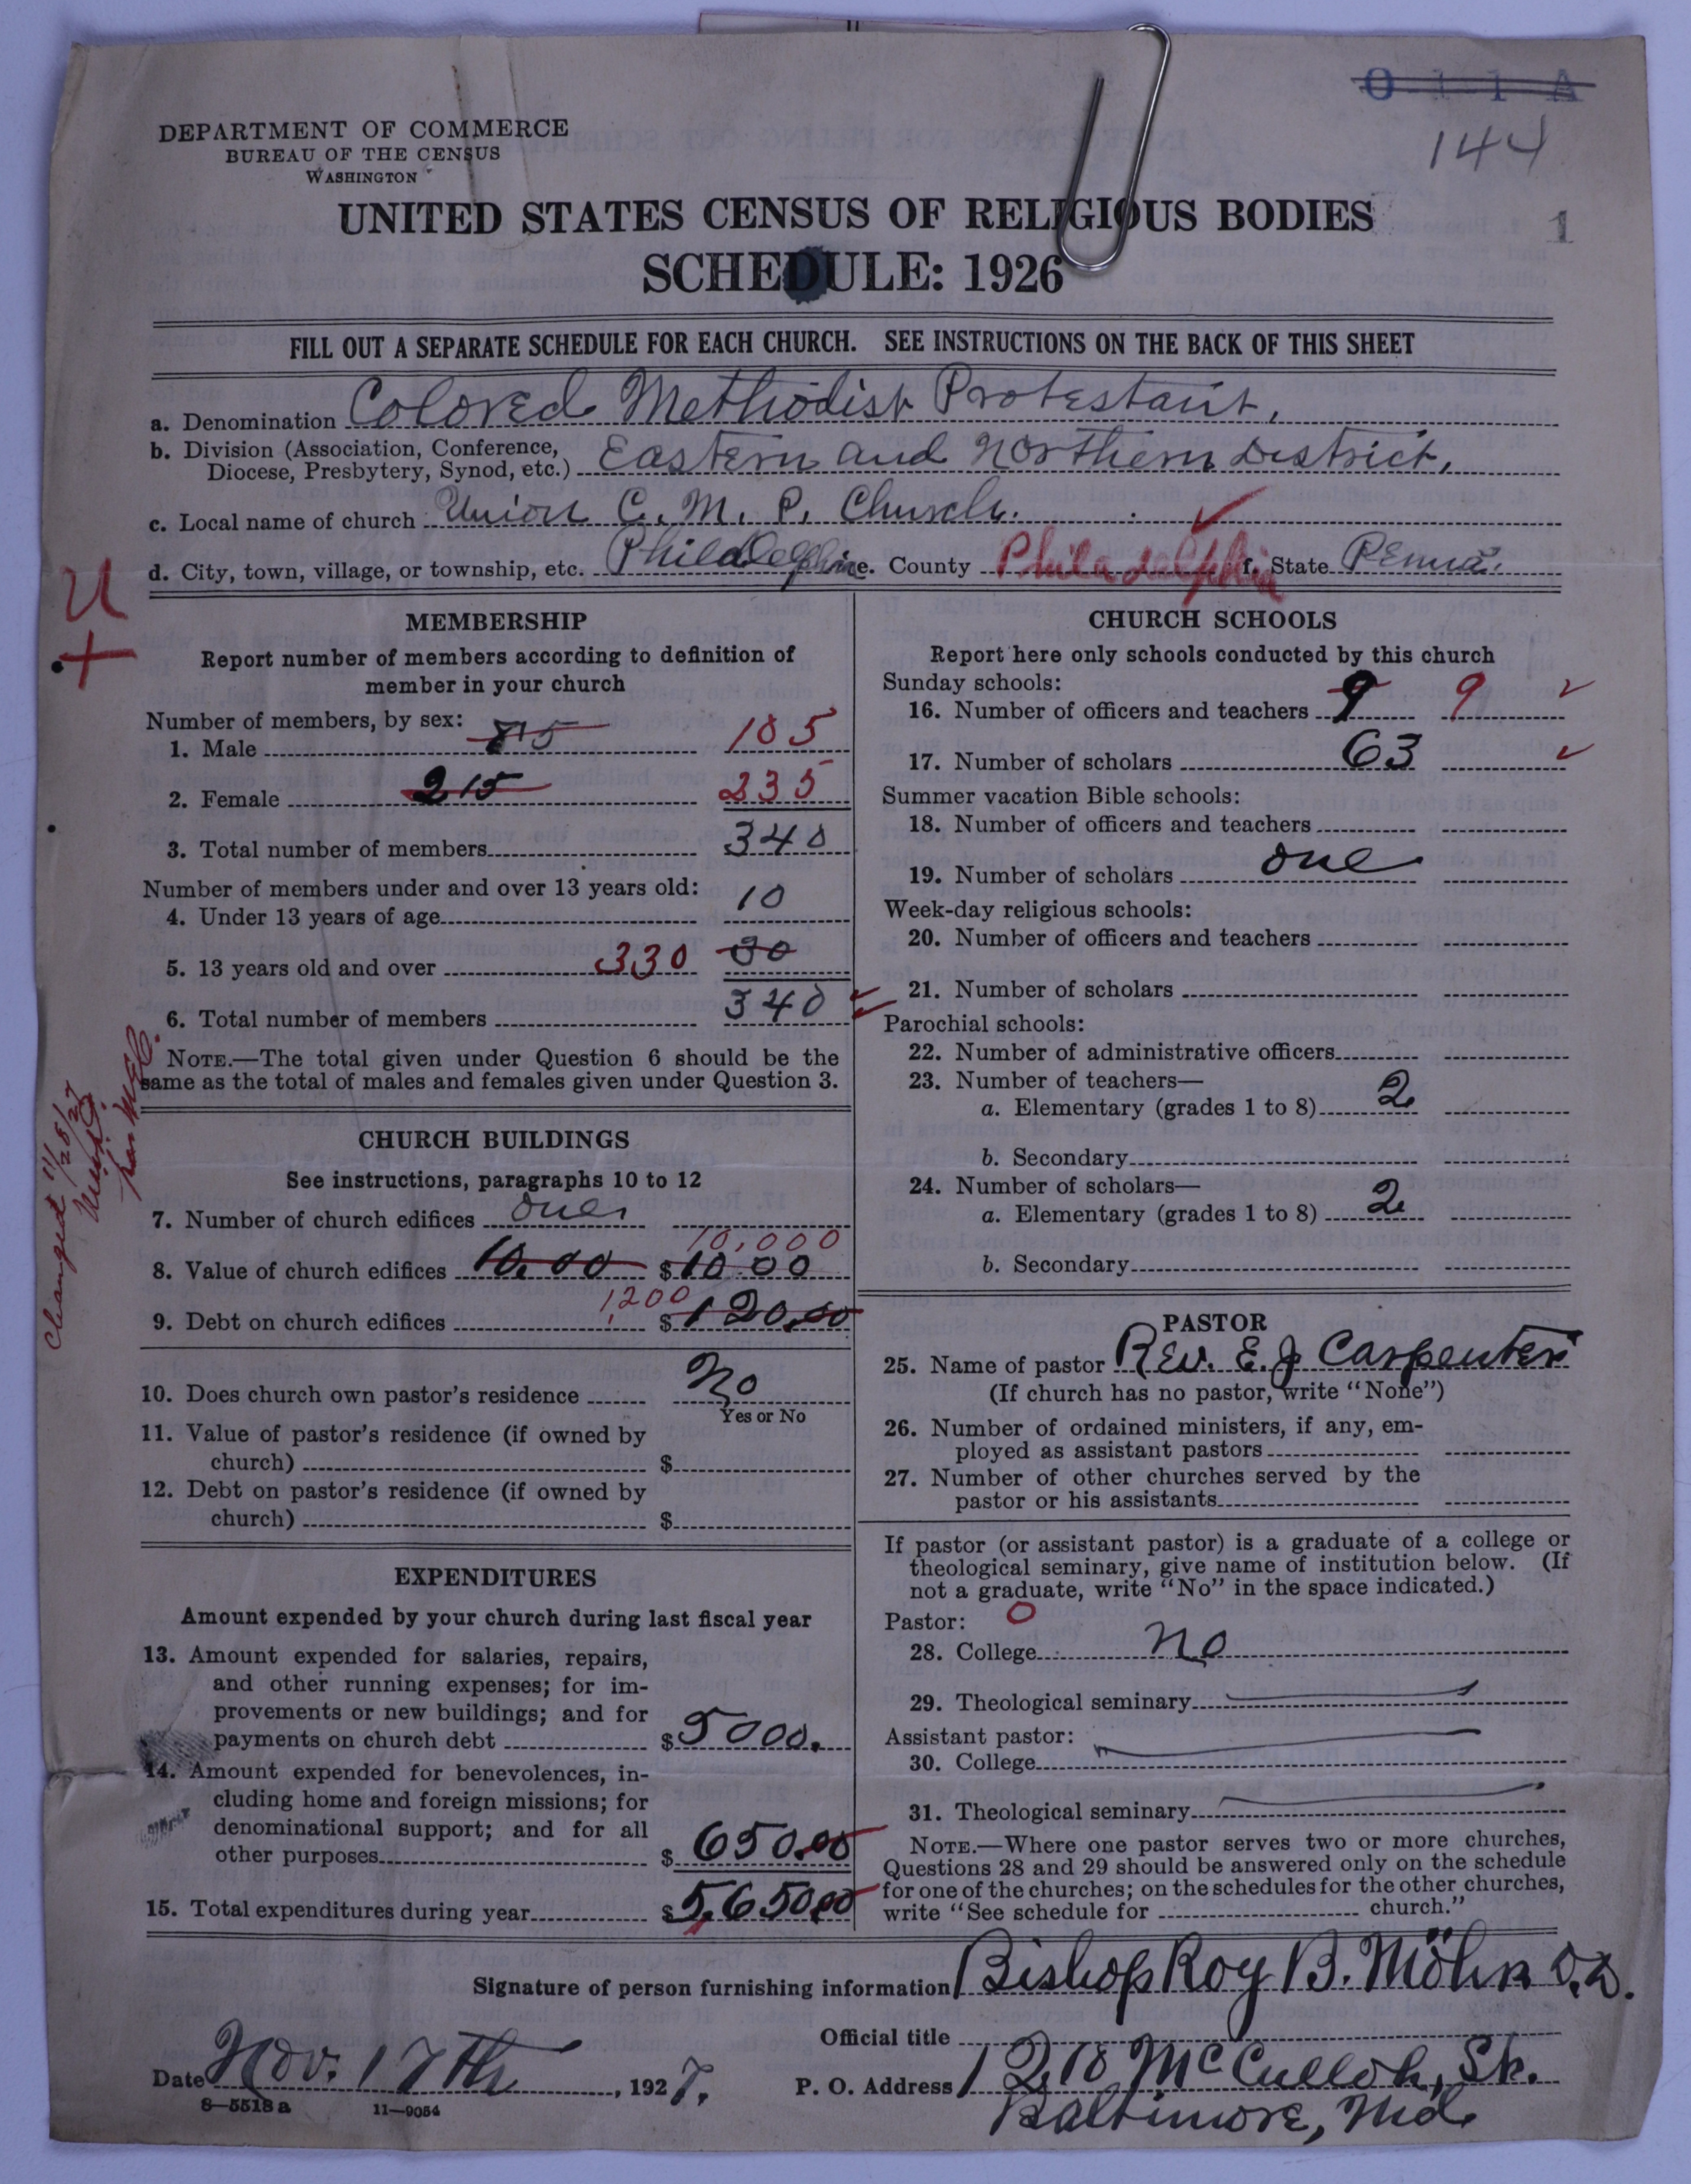 0 1 1 A
144
DEPARTMENT OF COMMERCE
BUREAU OF THE CENSUS
WASHINGTON
UNITED STATES CENSUS OF RELIGIOUS BODIES 1
SCHEDULE: 1926
FILL OUT A SEPARATE SCHEDULE FOR EACH CHURCH. SEE INSTRUCTIONS ON THE BACK OF THIS SHEET
a. Denomination Colored Methodist Protestant.
b. Division (Association, Conference,
Diocese, Presbytery, Synod, etc.) Eastern and Northern District.
c. Local name of church Union C. M. P. Church.
d. City, town, village, or township, etc. Philadelphia e. County Philadelphia f. State Penna.
U
+
MEMBERSHIP
Report number of members according to definition of
member in your church
Number of members, by sex:
1. Male 105
2. Female 215 235
3. Total number of members 340
Number of members under and over 13 years old:
4. Under 13 years of age 10
5. 13 years old and over 330 30
6. Total number of members 340
NOTE.—The total given under Question 6 should be the
same as the total of males and females given under Question 3.
Changed 11/28/27
per
CHURCH BUILDINGS
See instructions, paragraphs 10 to 12
7. Number of church edifices one
10,000
8. Value of church edifices 10.00 $10.00
1,200
9. Debt on church edifices $120.00
10. Does church own pastor's residence No
Yes or No
11. Value of pastor's residence (if owned by
church) $
12. Debt on pastor's residence (if owned by
church) $
EXPENDITURES
Amount expended by your church during last fiscal year
13. Amount expended for salaries, repairs,
and other running expenses; for im-
provements or new buildings; and for
payments on church debt $5000.
14. Amount expended for benevolences, in-
cluding home and foreign missions; for
denominational support; and for all
other purposes $650.00
15. Total expenditures during year $5,650.00
CHURCH SCHOOLS
Report here only schools conducted by this church
Sunday schools:
16. Number of officers and teachers 9 9
17. Number of scholars 63
Summer vacation Bible schools:
18. Number of officers and teachers
19. Number of scholars one
Week-day religious schools:
20. Number of officers and teachers
21. Number of scholars
Parochial schools:
22. Number of administrative officers
23. Number of teachers—
a. Elementary (grades 1 to 8) 2
b. Secondary
24. Number of scholars—
a. Elementary (grades 1 to 8) 2
b. Secondary
PASTOR
25. Name of pastor Rev. E. J Carpenter
(If church has no pastor, write "None")
26. Number of ordained ministers, if any, em-
ployed as assistant pastors
27. Number of other churches served by the
pastor or his assistants
If pastor (or assistant pastor) is a graduate of a college or
theological seminary, give name of institution below. (If
not a graduate, write "No" in the space indicated.)
Pastor: 0
28. College no
29. Theological seminary
Assistant pastor:
30. College
31. Theological seminary
NOTE.—Where one pastor serves two or more churches,
Questions 28 and 29 should be answered only on the schedule
for one of the churches; on the schedules for the other churches,
write "See schedule for church."
Signature of person furnishing information Bishop Roy B. Möhn D.D.
Official title
Date Nov. 17th, 1927. P. O. Address 1210 McCulloh, St.
Baltimore, Md.
8—5518a 11—9054